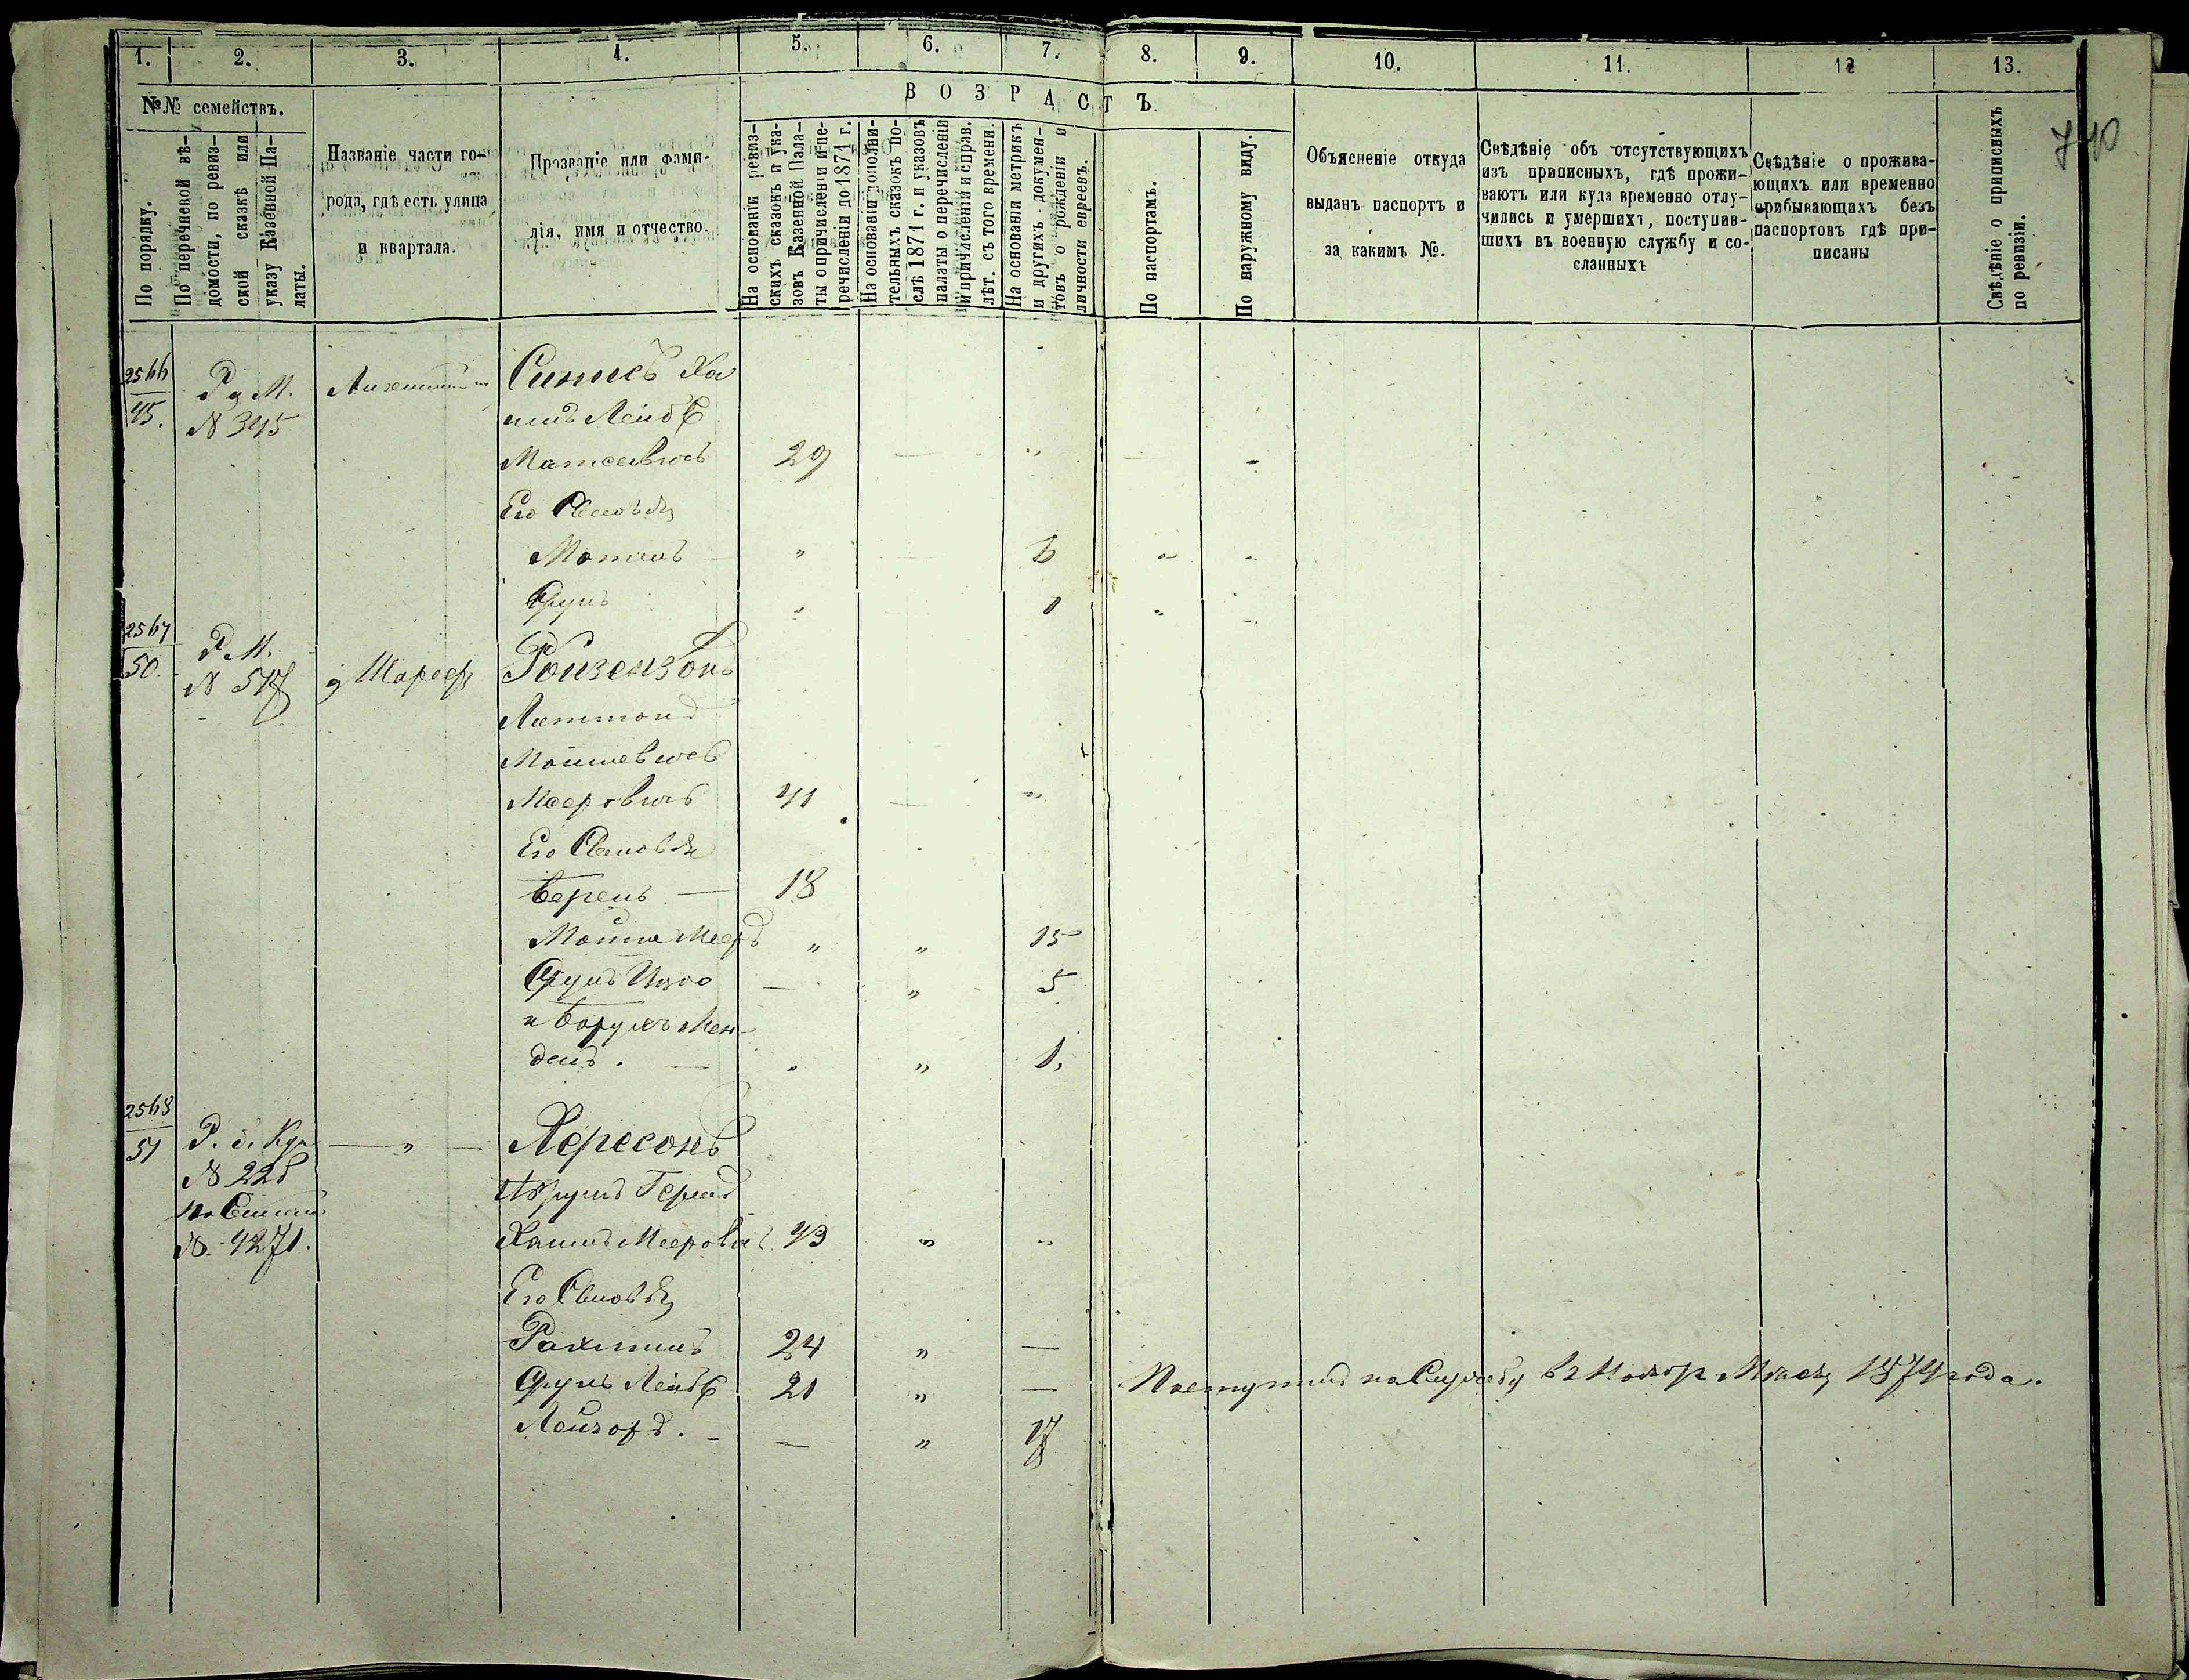 1. 2. 3. 4. 5. 6. 7. 8. 9. 10. 11. 12 13.
740
№№ семействъ.
По порядку.
По перечневой вѣ-
домости, по ревиз-
ской сказкѣ или
указу Казенной Па-
латы.
Названіе части го-
рода, гдѣ есть улица
и квартала.
Прозваніе или фами-
лія, имя и отчество.
ВОЗРАСТЪ.
На основаніи ревиз-
скихъ сказокъ и ука-
зовъ Казенной Пала-
ты о причисленіи и пе-
речисленіи до 1871 г.
На основаніи дополни-
тельныхъ сказокъ по-
слѣ 1871 г. и указовъ
палаты о перечисленіи
и причисленіи и справ.
лѣт. съ того времени.
На основаніи метрикъ
и другихъ докумен-
товъ о рожденіи и
личности евреевъ.
По паспортамъ.
По наружному виду.
Объясненіе откуда
выданъ паспортъ и
за какимъ №.
Свѣдѣніе объ отсутствующихъ
изъ приписныхъ, гдѣ прожи-
ваютъ или куда временно отлу-
чились и умершихъ, поступив-
шихъ въ военную службу и со-
сланныхъ
Свѣдѣніе о прожива-
ющихъ или временно
прибывающихъ безъ
паспортовъ гдѣ при-
писаны
Свѣдѣніе о приписныхъ
по ревизіи.
2566
45.
Р. М.
N 345
Ха
имъ Лейбъ
29
Его Сыновья
Мотель " 6
Срулъ " 1
2567
50.
Р. М.
N 517
Ройзензонъ
Мошкевичъ
Мееровичъ 41 "
Его Сыновья
Берень 18
Мошка Мееръ " " 15
Срулъ Ицко " 5
и Борухъ Мен-
дель. " " 1.
2568
51
N 4271.
"
Лересонъ
Хаимъ Мееровичъ 43 " "
Его Сыновья
Рахмиль 24 " —
Срулъ Лейбъ 21 " — Поступилъ на Службу въ Ноябрѣ Мѣсяцѣ 1874 года.
Лейзоръ. — " 17